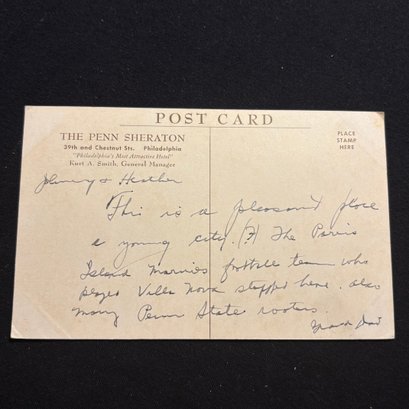 POST CARD
THE PENN SHERATON
39th and Chestnut Sts. Philadelphia
"Philadelphia's Most Attractive Hotel"
Kurt A. Smith, General Manager
PLACE
STAMP
HERE
Johnny & Heather
This is a pleasant place
& young city. (?) The Parris
Island Marines football team who
played Villa Nova stopped here. also
many Penn State rooters.
Grand Dad